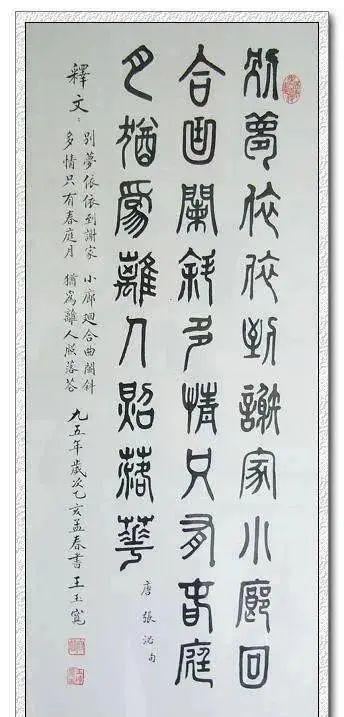 別夢依依到謝家小廊回
合曲闌斜多情只有春庭
月猶爲離人照落華
唐張泌句
釋文：
別夢依依到謝家 小廊廻合曲闌斜
多情只有春庭月 猶爲離人照落花
九五年歲次乙亥孟春書 王玉寬